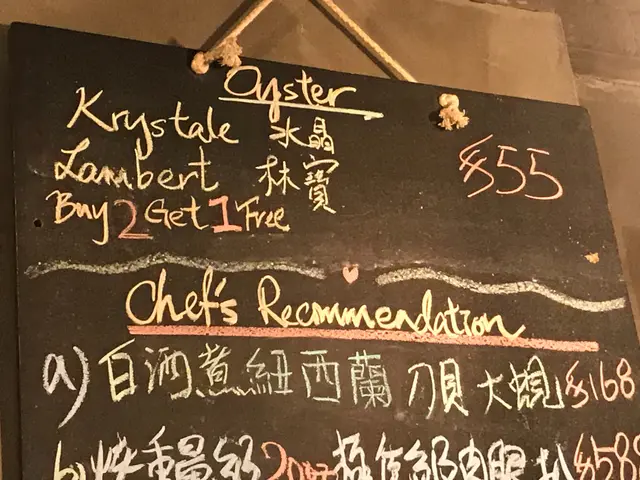 Oyster
Krystale 水晶
Lambert 林寶
$55
Buy 2 Get 1 Free
Chef's Recommendation
a) 白酒煮紐西蘭 刀貝 大蜆 $168
b) 重量級 20oz 級肉眼扒 $588